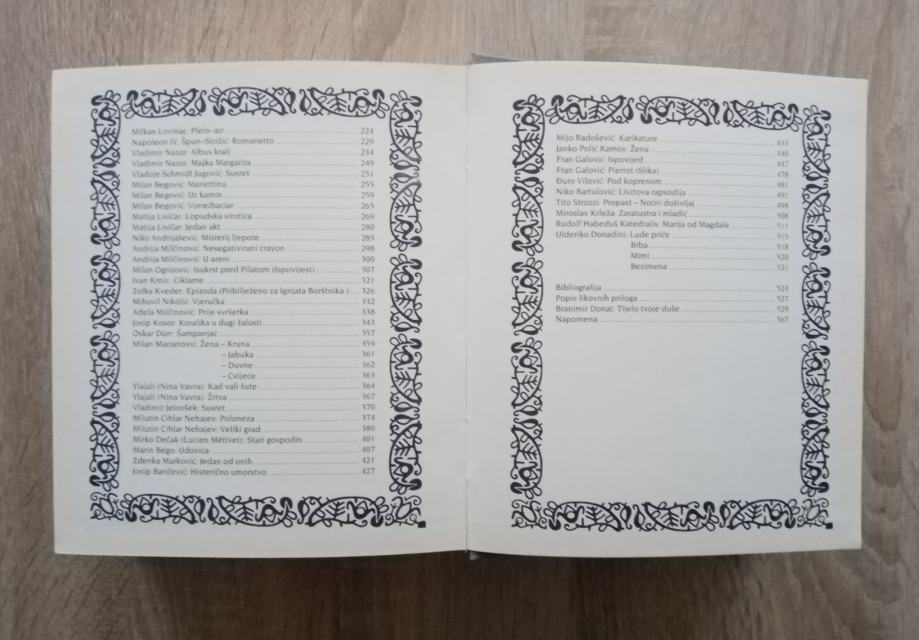 Milkan Lovinac: Plein-air 224
Napoleon IV. Špun-Strižić: Romanetto 229
Vladimir Nazor: Albus kralj 234
Vladimir Nazor: Majka Margarita 249
Vladoje Schmidt Jugović: Susret 251
Milan Begović: Mariettina 255
Milan Begović: Uz kamin 259
Milan Begović: Vorreibaciar 265
Matija Lisičar: Lopudska sirotica 269
Matija Lisičar: Jedan akt 280
Niko Andrijašević: Misterij ljepote 285
Andrija Milčinović: Nesegativirani crayon 298
Andrija Milčinović: U areni 300
Milan Ogrizović: Isukrst pred Pilatom (Ispovijest) 307
Ivan Krnic: Ciklame 321
Zofka Kveder: Epizoda (Pribilježeno za Ignjata Borštnika.) 326
Mihovil Nikolić: Vjeručka 332
Adela Milčinović: Prije svršetka 338
Josip Kosor: Koraljka u dugi žalosti 343
Oskar Dürr: Šampanjac 357
Milan Marjanović: Žena – Kruna 359
– Jabuka 361
– Duvne 362
– Cvijeće 363
Ylajali (Nina Vavra): Kad vali šute 364
Ylajali (Nina Vavra): Žrtva 367
Vladimir Jelovšek: Susret 370
Milutin Cihlar Nehajev: Poloneza 374
Milutin Cihlar Nehajev: Veliki grad 380
Mirko Dečak (Lucien Métivet): Stari gospodin 401
Marin Bego: Udovica 407
Zdenka Marković: Jedan od onih 421
Josip Baričević: Histerično umorstvo 427
Mijo Radošević: Karikature 433
Janko Polić Kamov: Žena 440
Fran Galović: Ispovijed 447
Fran Galović: Pierrot (Slika) 478
Đuro Vilović: Pod koprenom 481
Niko Bartulović: Lisztova rapsodija 491
Tito Strozzi: Propast – Noćni doživljaj 498
Miroslav Krleža: Zaratustra i mladić 508
Rudolf Habeduš Katedralis: Marija od Magdale 511
Ulderiko Donadini: Lude priče 515
Biba 518
Mimi 520
Bezimena 521
Bibliografija 524
Popis likovnih priloga 527
Branimir Donat: Tijelo tvoje duše 529
Napomena 567